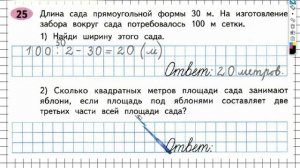 25 Длина сада прямоугольной формы 30 м. На изготовление
забора вокруг сада потребовалось 100 м сетки.
1) Найди ширину этого сада.
50
100 : 2 - 30 = 20 (м)
Ответ: 20 метров.
2) Сколько квадратных метров площади сада занимают
яблони, если площадь под яблонями составляет две
третьих части всей площади сада?
Ответ: